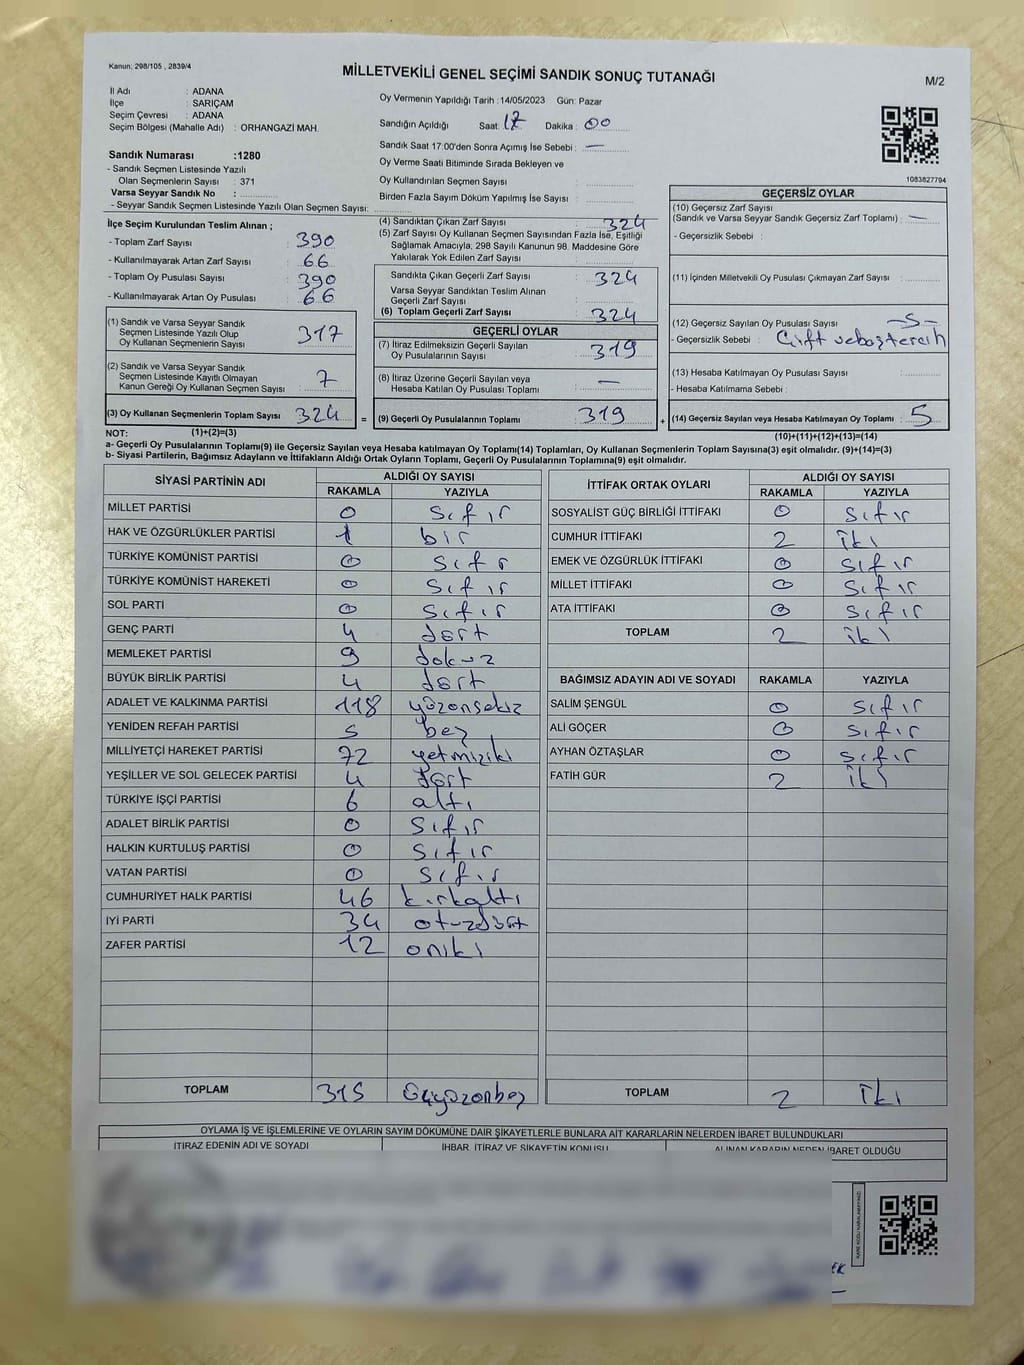 Kanun; 298/105 , 2839/4
MİLLETVEKİLİ GENEL SEÇİMİ SANDIK SONUÇ TUTANAĞI
M/2
İl Adı : ADANA
İlçe : SARIÇAM
Seçim Çevresi : ADANA
Seçim Bölgesi (Mahalle Adı) : ORHANGAZİ MAH.
Oy Vermenin Yapıldığı Tarih :14/05/2023 Gün: Pazar
Sandığın Açıldığı Saat: 17 Dakika : 00
Sandık Saat 17:00'den Sonra Açımış İse Sebebi : —
Oy Verme Saati Bitiminde Sırada Bekleyen ve
Oy Kullandırılan Seçmen Sayısı :
Birden Fazla Sayım Döküm Yapılmış İse Sayısı :
1083827794
Sandık Numarası :1280
- Sandık Seçmen Listesinde Yazılı
Olan Seçmenlerin Sayısı : 371
Varsa Seyyar Sandık No :
- Seyyar Sandık Seçmen Listesinde Yazılı Olan Seçmen Sayısı:
İlçe Seçim Kurulundan Teslim Alınan ;
- Toplam Zarf Sayısı : 390
- Kullanılmayarak Artan Zarf Sayısı : 66
- Toplam Oy Pusulası Sayısı : 390
- Kullanılmayarak Artan Oy Pusulası : 66
(1) Sandık ve Varsa Seyyar Sandık
Seçmen Listesinde Yazılı Olup
Oy Kullanan Seçmenlerin Sayısı : 317
(2) Sandık ve Varsa Seyyar Sandık
Seçmen Listesinde Kayıtlı Olmayan
Kanun Gereği Oy Kullanan Seçmen Sayısı : 7
(3) Oy Kullanan Seçmenlerin Toplam Sayısı : 324 =
(4) Sandıktan Çıkan Zarf Sayısı : 324
(5) Zarf Sayısı Oy Kullanan Seçmen Sayısından Fazla İse, Eşitliği
Sağlamak Amacıyla; 298 Sayılı Kanunun 98. Maddesine Göre
Yakılarak Yok Edilen Zarf Sayısı :
Sandıkta Çıkan Geçerli Zarf Sayısı : 324
Varsa Seyyar Sandıktan Teslim Alınan
Geçerli Zarf Sayısı :
(6) Toplam Geçerli Zarf Sayısı : 324
GEÇERLİ OYLAR
(7) İtiraz Edilmeksizin Geçerli Sayılan
Oy Pusulalarının Sayısı : 319
(8) İtiraz Üzerine Geçerli Sayılan veya
Hesaba Katılan Oy Pusulası Toplamı : —
(9) Geçerli Oy Pusulalarının Toplamı : 319 +
GEÇERSİZ OYLAR
(10) Geçersiz Zarf Sayısı
(Sandık ve Varsa Seyyar Sandık Geçersiz Zarf Toplamı) : —
- Geçersizlik Sebebi :
(11) İçinden Milletvekili Oy Pusulası Çıkmayan Zarf Sayısı :
(12) Geçersiz Sayılan Oy Pusulası Sayısı : -5-
- Geçersizlik Sebebi : Çift ve boş tercih
(13) Hesaba Katılmayan Oy Pusulası Sayısı :
- Hesaba Katılmama Sebebi :
(14) Geçersiz Sayılan veya Hesaba Katılmayan Oy Toplamı : 5
NOT: (1)+(2)=(3)
(10)+(11)+(12)+(13)=(14)
a- Geçerli Oy Pusulalarının Toplamı(9) ile Geçersiz Sayılan veya Hesaba katılmayan Oy Toplamı(14) Toplamları, Oy Kullanan Seçmenlerin Toplam Sayısına(3) eşit olmalıdır. (9)+(14)=(3)
b- Siyasi Partilerin, Bağımsız Adayların ve İttifakların Aldığı Ortak Oyların Toplamı, Geçerli Oy Pusulalarının Toplamına(9) eşit olmalıdır.
SİYASİ PARTİNİN ADI ALDIĞI OY SAYISI
RAKAMLA YAZIYLA
MİLLET PARTİSİ 0 sıfır
HAK VE ÖZGÜRLÜKLER PARTİSİ 1 bir
TÜRKİYE KOMÜNİST PARTİSİ 0 sıfır
TÜRKİYE KOMÜNİST HAREKETİ 0 sıfır
SOL PARTİ 0 sıfır
GENÇ PARTİ 4 dört
MEMLEKET PARTİSİ 9 dokuz
BÜYÜK BİRLİK PARTİSİ 4 dört
ADALET VE KALKINMA PARTİSİ 118 yüzonsekiz
YENİDEN REFAH PARTİSİ 5 beş
MİLLİYETÇİ HAREKET PARTİSİ 72 yetmişiki
YEŞİLLER VE SOL GELECEK PARTİSİ 4 dört
TÜRKİYE İŞÇİ PARTİSİ 6 altı
ADALET BİRLİK PARTİSİ 0 sıfır
HALKIN KURTULUŞ PARTİSİ 0 sıfır
VATAN PARTİSİ 0 sıfır
CUMHURİYET HALK PARTİSİ 46 kırkaltı
İYİ PARTİ 34 otuzdört
ZAFER PARTİSİ 12 oniki
TOPLAM 315 üçyüzonbeş
İTTİFAK ORTAK OYLARI ALDIĞI OY SAYISI
RAKAMLA YAZIYLA
SOSYALİST GÜÇ BİRLİĞİ İTTİFAKI 0 sıfır
CUMHUR İTTİFAKI 2 iki
EMEK VE ÖZGÜRLÜK İTTİFAKI 0 sıfır
MİLLET İTTİFAKI 0 sıfır
ATA İTTİFAKI 0 sıfır
TOPLAM 2 iki
BAĞIMSIZ ADAYIN ADI VE SOYADI RAKAMLA YAZIYLA
SALİM ŞENGÜL 0 sıfır
ALİ GÖÇER 0 sıfır
AYHAN ÖZTAŞLAR 0 sıfır
FATİH GÜR 2 iki
TOPLAM 2 iki
OYLAMA İŞ VE İŞLEMLERİNE VE OYLARIN SAYIM DÖKÜMÜNE DAİR ŞİKAYETLERLE BUNLARA AİT KARARLARIN NELERDEN İBARET BULUNDUKLARI
İTİRAZ EDENİN ADI VE SOYADI İHBAR, İTİRAZ VE ŞİKAYETİN KONUSU ALINAN KARARIN NEDEN İBARET OLDUĞU